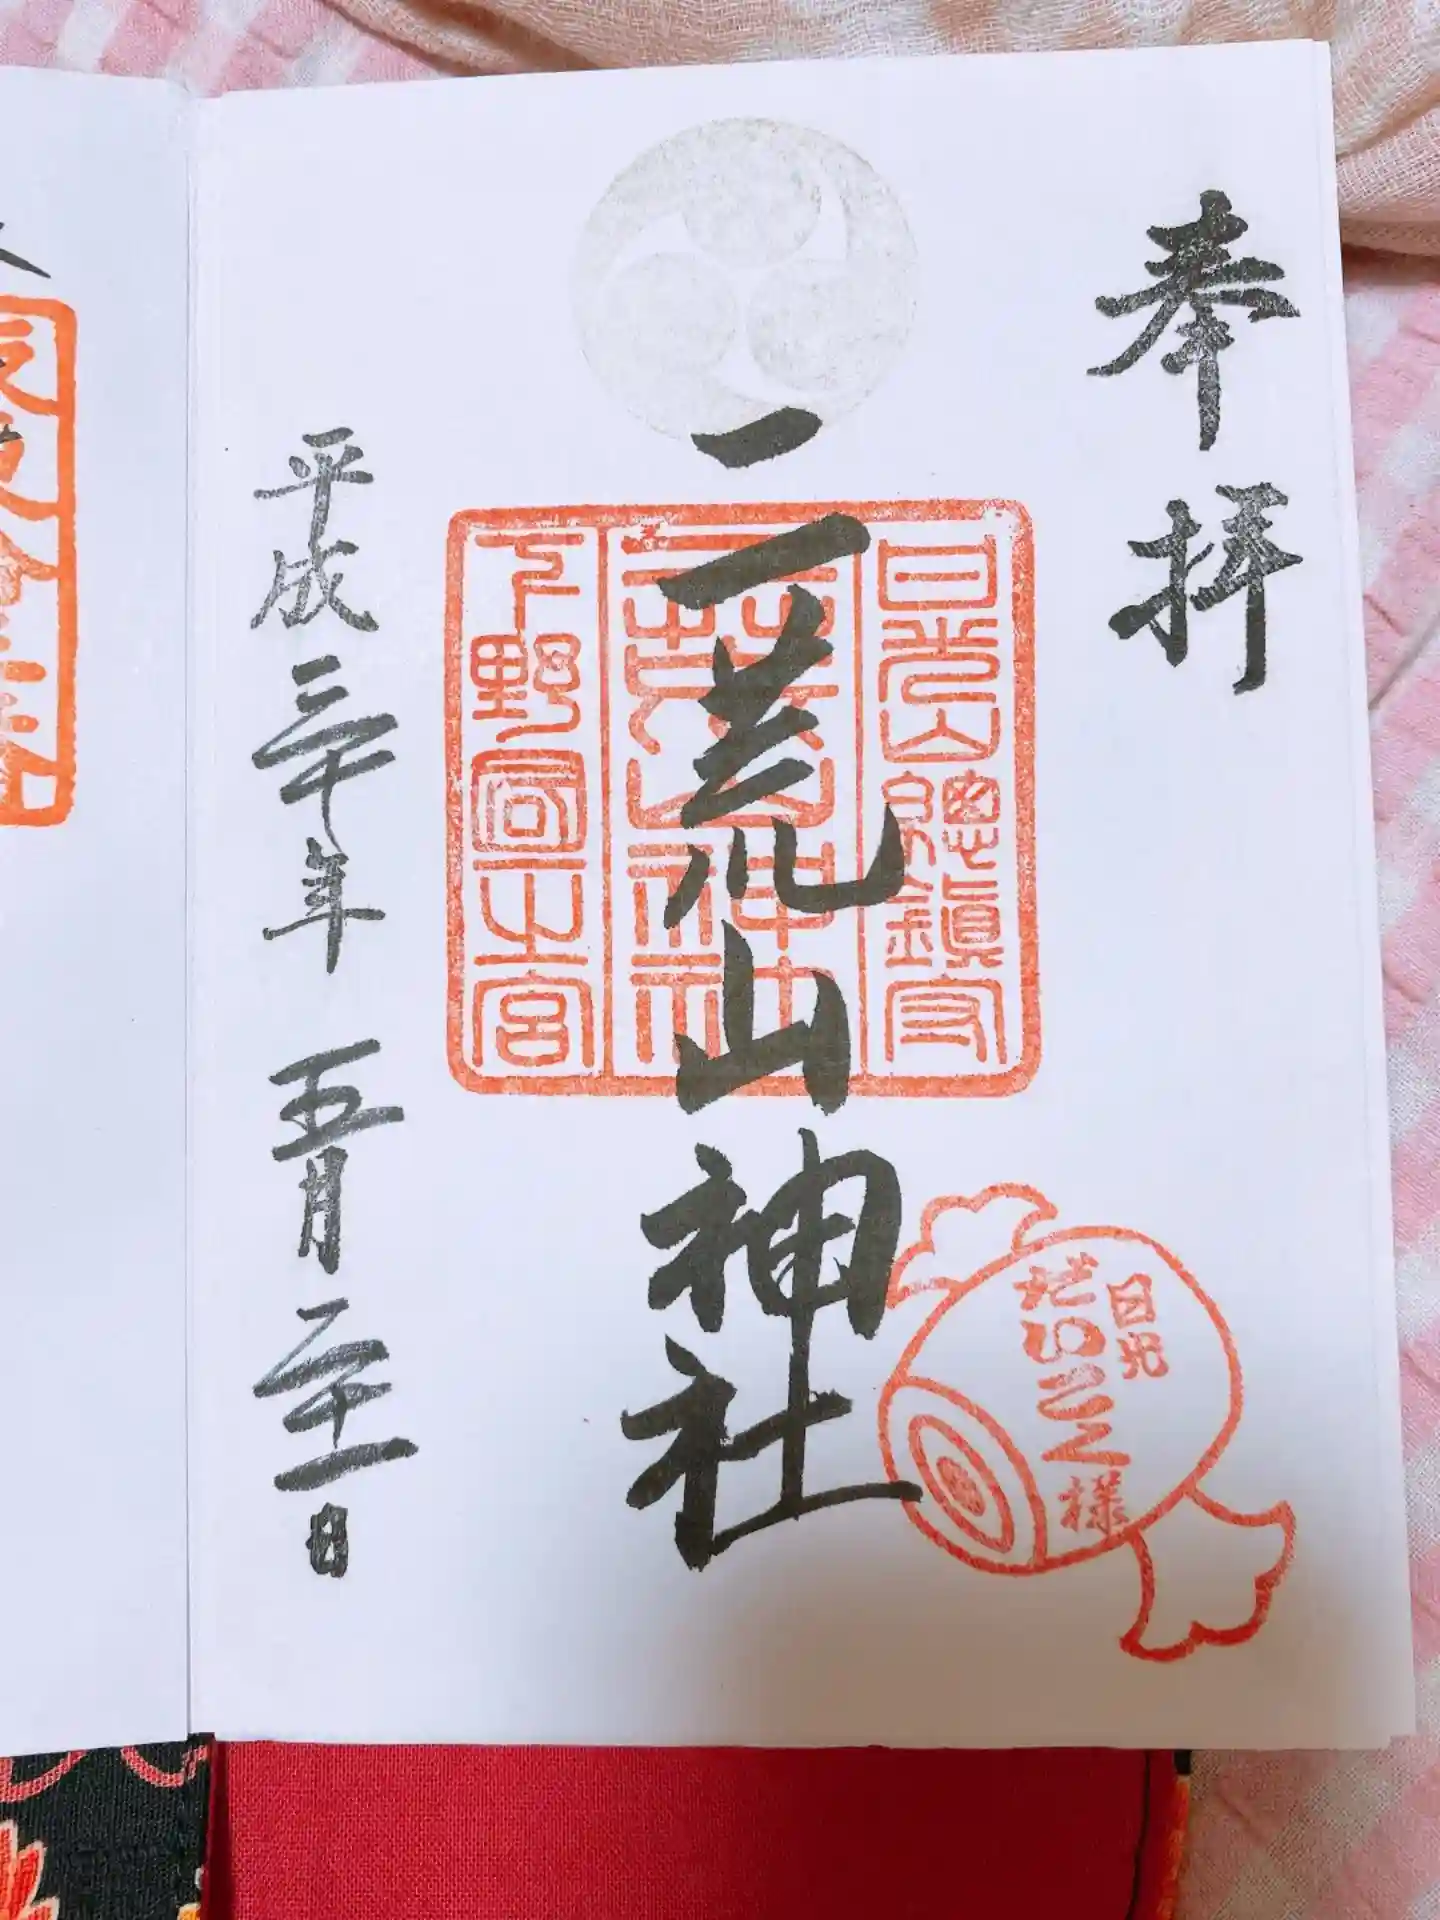 奉拝
日光山總鎮守
二荒山神社
下野國一之宮
二荒山神社
日光
だいこく様
平成三十年 五月二十一日